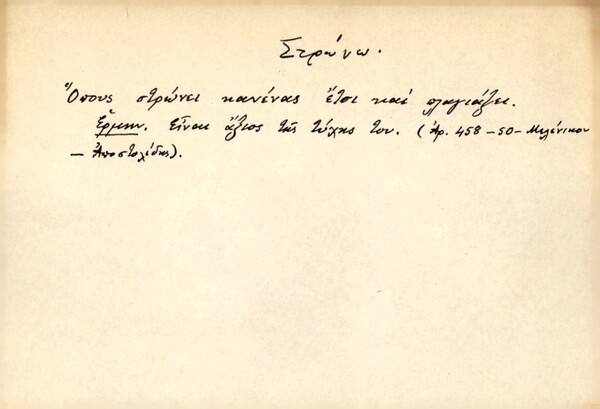 Στρώνω.
Ὅπους στρώνει κανένας ἔτσι καί πλαγιάζει.
Ἑρμην. Εἶναι ἄξιος τῆς τύχης του. (Ἀρ. 458 – 50 – Μελένικον
– Ἀποστολίδης).